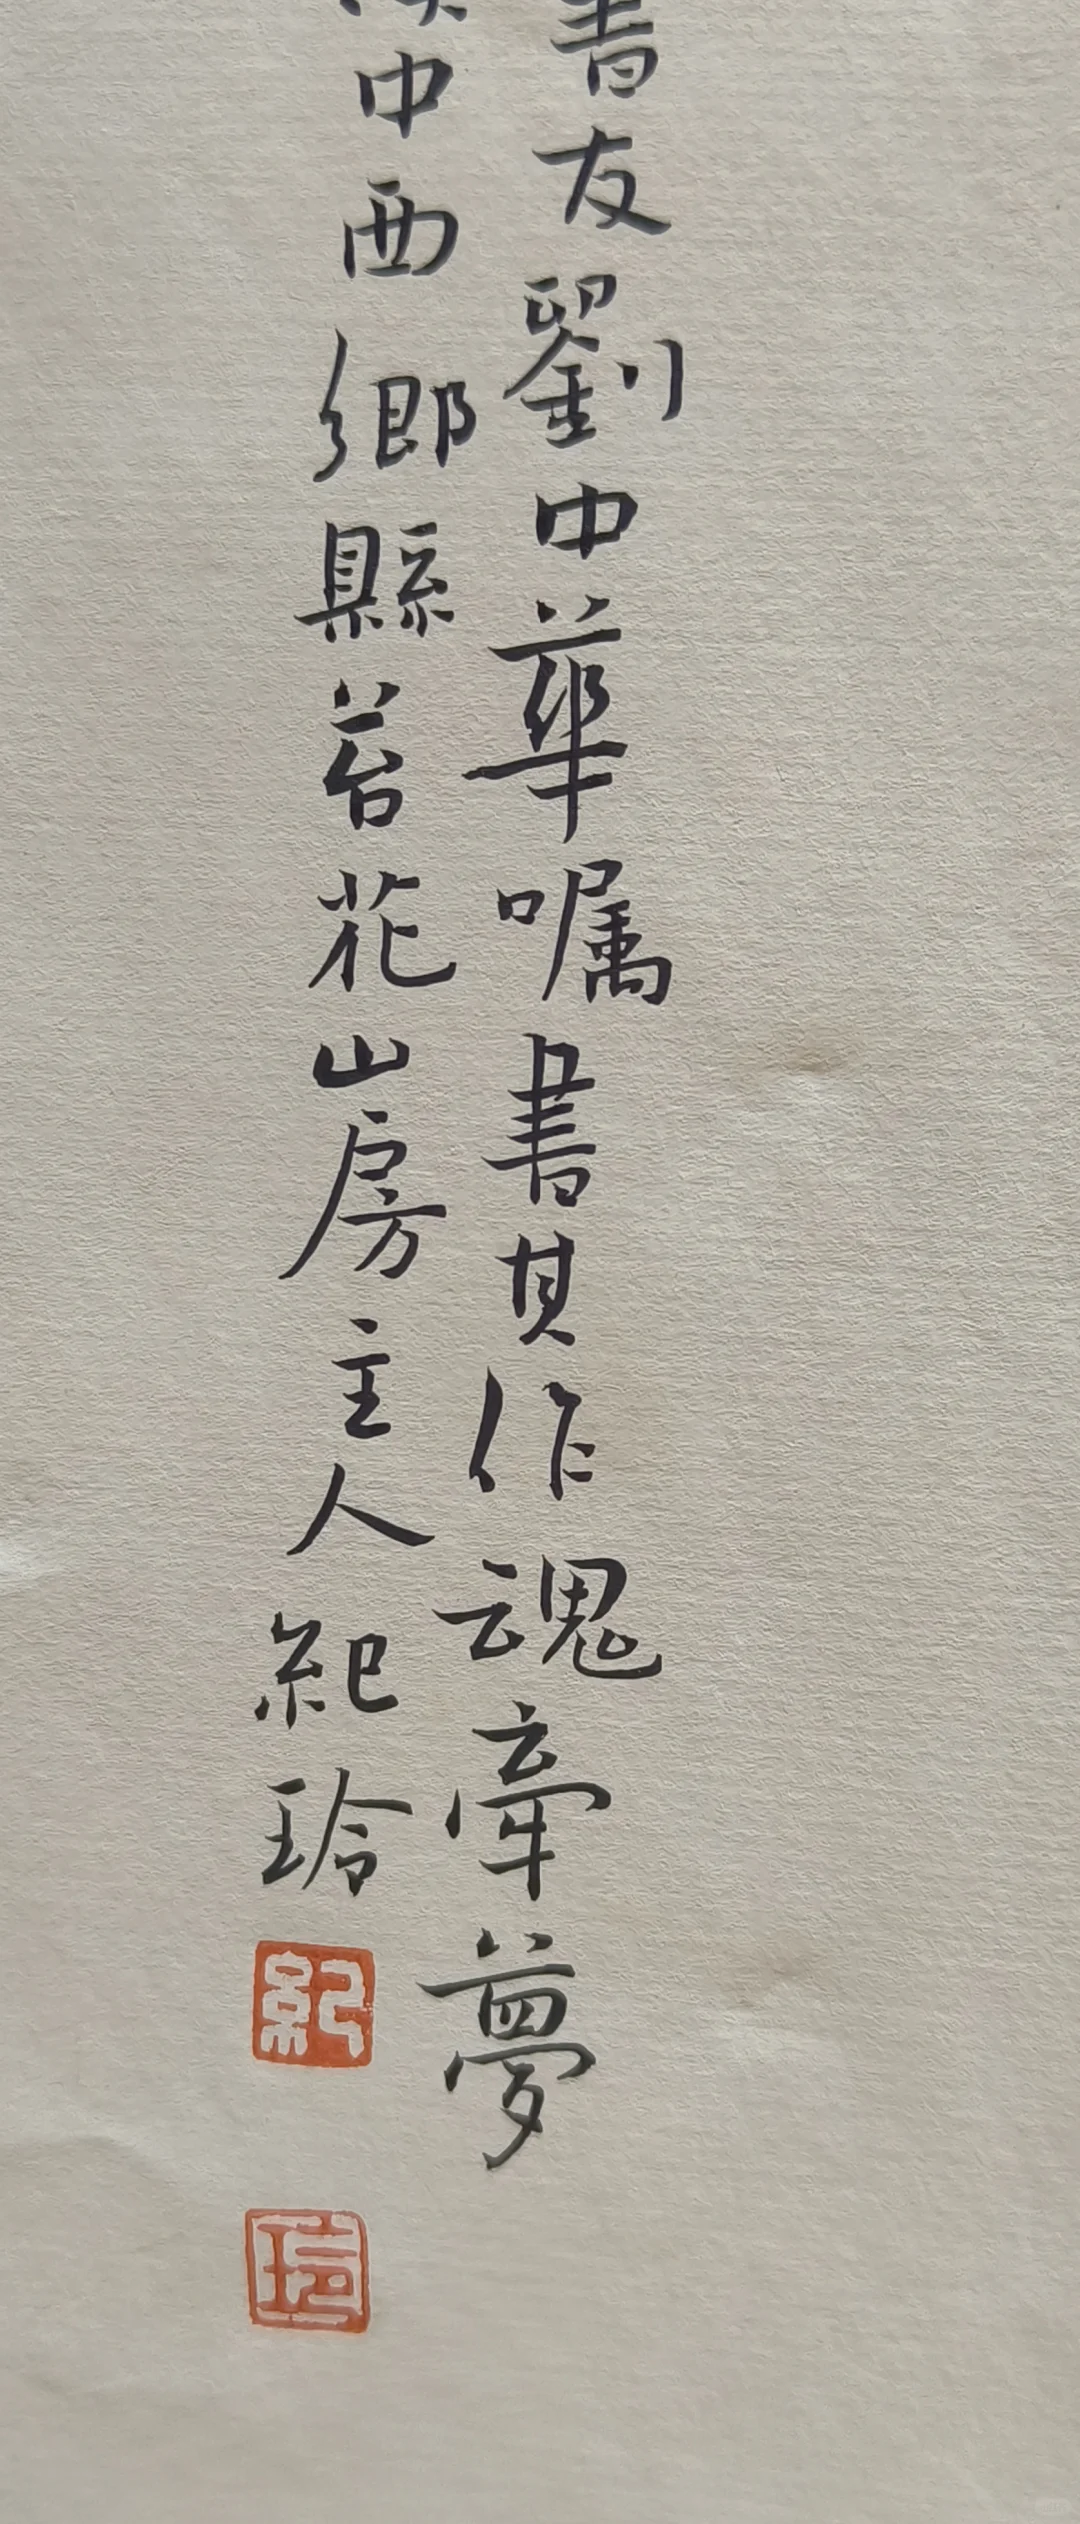 書友劉中華嘱書其作魂牽夢
漢中西鄉縣苔花山房主人紀玲
紀
玲